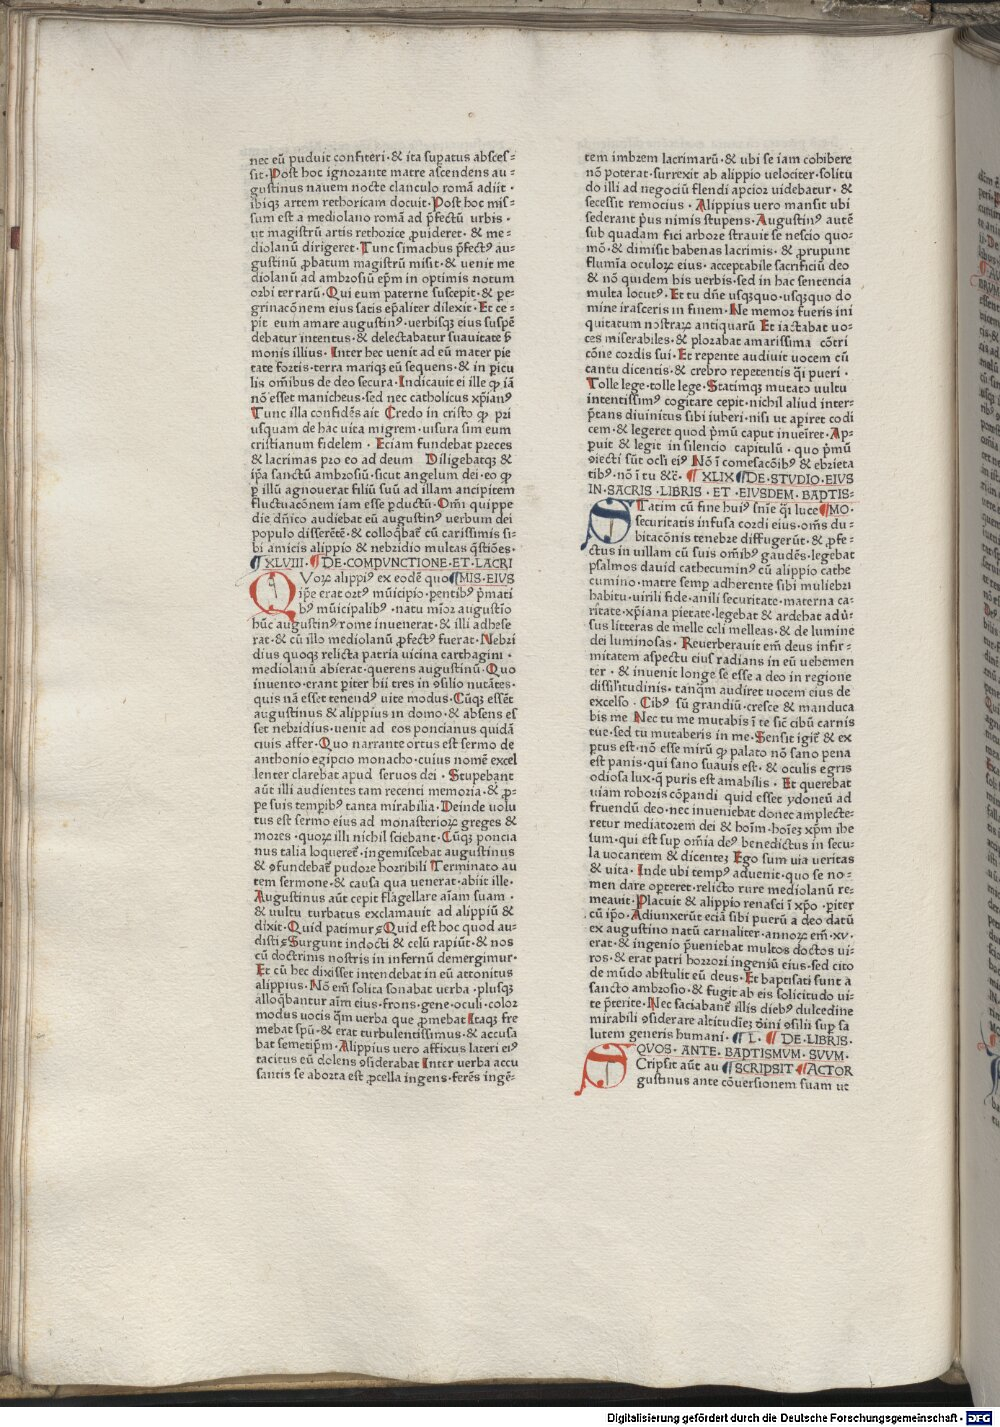 nec eū puduit confiteri·& ita suꝑatus absces⸗
sit·Post hoc ignorante matre ascendens au⸗
gustinus nauem nocte clanculo romā adiit·
ibiqꝫ artem rethoricam docuit·Post hoc mis⸗
sum est a mediolano romā ad p̄fectū urbis·
ut magistrū artis rethorice ꝓuideret·& me⸗
diolanū dirigeret·Tunc simachus p̄fectꝰ au⸗
gustinū ꝓbatum magistrū misit·& uenit me
diolanū ad ambrosiū ep̄m in optimis notum
orbi terrarū·Qui eum paterne suscepit·& ꝑe⸗
grinacōnem eius satis ep̄aliter dilexit·Et ce⸗
pit eum amare augustinꝰ·uerbisqꝫ eius suspē
debatur intentus·& delectabatur suauitate ẜ
monis illius·Inter hec uenit ad eū mater pie
tate fortis·terra mariqꝫ eū sequens·& in ꝑicu
lis om̄ibus de deo secura·Indicauit ei ille ꝙ iā
nō esset manicheus·sed nec catholicus xp̄ianꝰ
Tunc illa confidēs ait Credo in cristo ꝙ pri
usquam de hac uita migrem·uisura sim eum
cristianum fidelem·Eciam fundebat preces
& lacrimas pro eo ad deum Diligebatqꝫ &
ip̄a sanctū ambrosiū·sicut angelum dei·eo ꝙ
ꝑ illū agnouerat filiū suū ad illam ancipitem
fluctuacōnem iam esse ꝑductū·Om̄i quippe
die dn̄ico audiebat eū augustinꝰ uerbum dei
populo disserētē·& colloq̄bat̄ cū carissimis si⸗
bi amicis alippio & nebridio multas q̄stiōes·
¶XLVIII·¶DE·COMPVNCTIONE·ET·LACRI
QVoꝝ alippiꝰ ex eodē quo¶MIS·EIVS
ip̄e erat ortꝰ mūicipio·ꝑentibꝰ p̄mati
bꝰ mūicipalibꝰ·natu mīor augustīo
hūc augustinꝰ rome inuenerat·& illi adhese
rat·& cū illo mediolanū ꝓfectꝰ fuerat·Nebri
dius quoqꝫ relicta patria uicina carthagini·
mediolanū abierat·querens augustinū·Quo
inuento·erant ꝑiter hii tres in ꝯsilio nutātes·
quis nā esset tenendꝰ uite modus·Cūqꝫ essēt
augustinus & alippius in domo·& absens es
set nebridius·uenit ad eos poncianus quidā
ciuis affer·Quo narrante ortus est sermo de
anthonio egipcio monacho·cuius nomē excel
lenter clarebat apud seruos dei·Stupebant
aūt illi audientes tam recenti memoria·& ꝓ⸗
pe suis tempibꝰ tanta mirabilia·Deinde uolu
tus est sermo eius ad monasterioꝝ greges &
mores·quoꝝ illi nichil sciebant·Cūqꝫ poncia
nus talia loqueret̄·ingemiscebat augustinus
& ꝯfundebat̄ pudore horribili Terminato au
tem sermone·& causa qua uenerat·abiit ille·
Augustinus aūt cepit flagellare aīam suam·
& uultu turbatus exclamauit ad alippiū &
dixit·Quid patimur⸗Quid est hoc quod au⸗
distis⸗Surgunt indocti & celū rapiūt·& nos
cū doctrinis nostris in infernū demergimur·
Et cū hec dixisset intendebat in eū attonitus
alippius·Nō em̄ solita sonabat uerba·plusqꝫ
alloq̄bantur aīm eius·frons·gene·oculi·color
modus uocis q̄m uerba que ꝓmebat Itaqꝫ fre
mebat spū·& erat turbulentissimus·& accusa
bat semetip̄m·Alippius uero affixus lateri eiꝰ
tacitus eū dolens ꝯsiderabat Inter uerba accu
santis se aborta est ꝓcella ingens·ferēs ingē⸗
tem imbrem lacrimarū·& ubi se iam cohibere
nō poterat·surrexit ab alippio uelociter·solitu
do illi ad negociū flendi apcior uidebatur·&
secessit remocius·Alippius uero mansit ubi
sederant p̄us nimis stupens·Augustinꝰ autē
sub quadam fici arbore strauit se nescio quo⸗
mō·& dimisit habenas lacrimis·& ꝓrupunt
flumīa oculoꝝ eius·acceptabile sacrificiū deo
& nō quidem his uerbis·sed in hac sentencia
multa locutꝰ·Et tu dn̄e usqꝫquo·usqꝫquo do
mine irasceris in finem·Ne memor fueris ini
quitatum nostraꝝ antiquarū Et iactabat uo⸗
ces miserabiles·& plorabat amarissima cōtri
cōne cordis sui·Et repente audiuit uocem cū
cantu dicentis·& crebro repetentis q̄i pueri·
Tolle lege·tolle lege·Statimqꝫ mutato uultu
intentissimꝰ cogitare cepit·nichil aliud inter⸗
p̄tans diuinitus sibi iuberi·nisi ut apiret codi
cem·& legeret quod p̄mū caput inueīret·Ap⸗
puit & legit in silencio capitulū·quo p̄mū
ꝯiecti sūt ocl̄i eiꝰ Nō ī comesacōibꝰ & ebrieta
tibꝰ·nō ī tu &c̄·¶XLIX¶DE·STVDIO·EIVS
IN·SACRIS·LIBRIS·ET·EIVSDEM·BAPTIS⸗
STatim cū fine huiꝰ sn̄ie q̄i luce¶MO·
securitatis infusa cordi eius·om̄s du⸗
bitacōnis tenebre diffugerūt·& ꝓfe⸗
ctus in uillam cū suis om̄ibꝰ gaudēs·legebat
psalmos dauid cathecuminꝰ cū alippio cathe
cumino·matre semp adherente sibi muliebri
habitu·uirili fide·anili securitate·materna ca⸗
ritate·xp̄iana pietate·legebat & ardebat adū⸗
sus litteras de melle celi melleas·& de lumine
dei luminosas·Reuerberauit em̄ deus infir⸗
mitatem aspectu eius radians in eū uehemen
ter·& inuenit longe se esse a deo in regione
dissilitudinis·tanq̄m audiret uocem eius de
excelso·Cibꝰ sū grandiū·cresce & manduca
bis me Nec tu me mutabis ī te sic̄ cibū carnis
tue·sed tu mutaberis in me·Sensit igit̄ & ex
ꝑtus est·nō esse mirū ꝙ palato nō sano pena
est panis·qui sano suauis est·& oculis egris
odiosa lux·q̄ puris est amabilis·Et querebat
uiam roboris cōpandi quid esset ydoneū ad
fruendū deo·nec inueniebat donec amplecte⸗
retur mediatorem dei & hoīm·hoīeꝫ xp̄m ihe
sum·qui est sup om̄ia deꝰ benedictus in secu⸗
la uocantem & dicenteꝫ Ego sum uia ueritas
& uita·Inde ubi tempꝰ aduenit·quo se no⸗
men dare opteret·relicto rure mediolanū re⸗
meauit·Placuit & alippio renasci ī xp̄o·ꝑiter
cū ip̄o·Adiunxerūt eciā sibi puerū a deo datū
ex augustino natū carnaliter·annoꝝ em̄·xv·
erat·& ingenio p̄ueniebat multos doctos ui⸗
ros·& erat patri horrori ingeniū eius·sed cito
de mūdo abstulit eū deus·Et baptisati sunt a
sancto ambrosio·& fugit ab eis solicitudo ui⸗
te p̄terite·Nec saciabant̄ illis diebꝰ dulcedine
mirabili ꝯsiderare altitudieꝫ dīni ꝯsilii sup sa
lutem generis humani·¶L·¶DE·LIBRIS·
QVOS·ANTE·BAPTISMVM·SVVM·
SCripsit aūt au¶SCRIPSIT¶ACTOR
gustinus ante cōuersionem suam ut
Digitalisierung gefördert durch die Deutsche Forschungsgemeinschaft - DFG